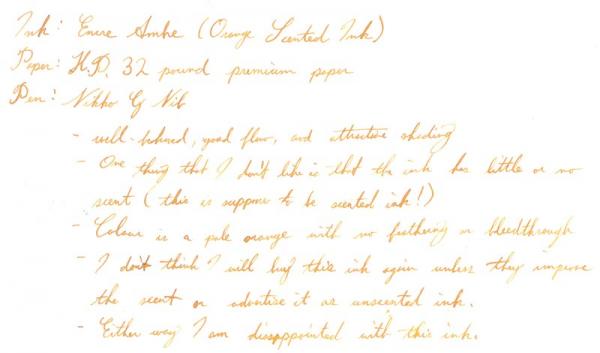 Ink: Encre Ambre (Orange Scented Ink)
Paper: H.P. 32 pound premium paper
Pen: Nikko G Nib
- well-behaved, good flow, and attractive shading
- One thing that I don't like is that the ink has little or no
scent (this is suppose to be scented ink!)
- Colour is a pale orange with no feathering or bleedthrough
- I don't think I will buy this ink again unless they improve
the scent or advertise it as unscented ink.
- Either way I am disappointed with this ink.